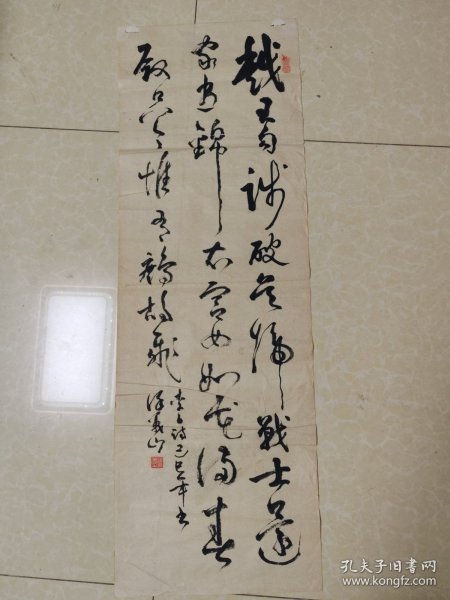 越王勾踐破吳歸戰士還
家盡錦衣宮女如花滿春
殿只今惟有鷓鴣飛
李白詩己巳年書
孔夫子旧书网
www.kongfz.com